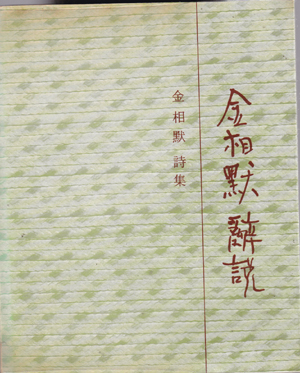 金相默辭說
金相默 詩集